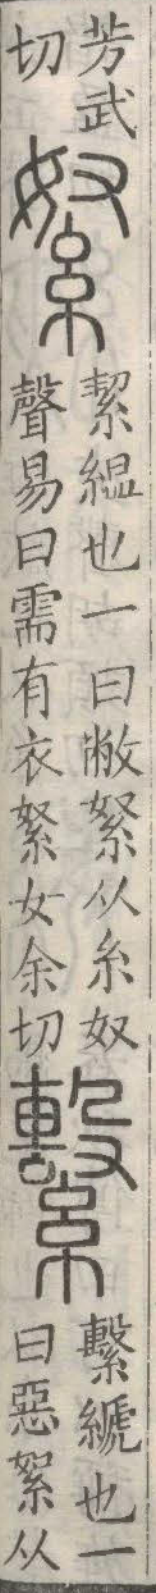 芳武
切
䋈
絜緼也一曰敝䋈从糸奴
聲易曰需有衣䋈女余切
繫
繫𦃇也一
曰惡絮从